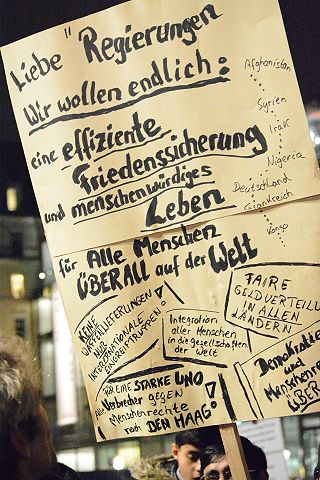 Liebe "Regierungen
Wir wollen endlich:
eine effiziente
Friedenssicherung
und menschenwürdiges
Leben
für Alle Menschen
ÜBERALL auf der Welt
Afghanistan
Syrien
Irak
Nigeria
Deutschland
Frankreich
Kongo
KEINE
WAFFENLIEFERUNGEN!
NUR
INTERNATIONALE
EINGREIFTRUPPEN!
Integration
aller Menschen
in die Gesellschaften
der Welt
FAIRE
GELDVERTEILU
IN ALLEN
LÄNDERN
FÜR EINE STARKE UNO
Alle Verbrecher GEGEN
Menschenrechte
nach DEN HAAG!
Demokratie
und
Menschenre
ÜBER